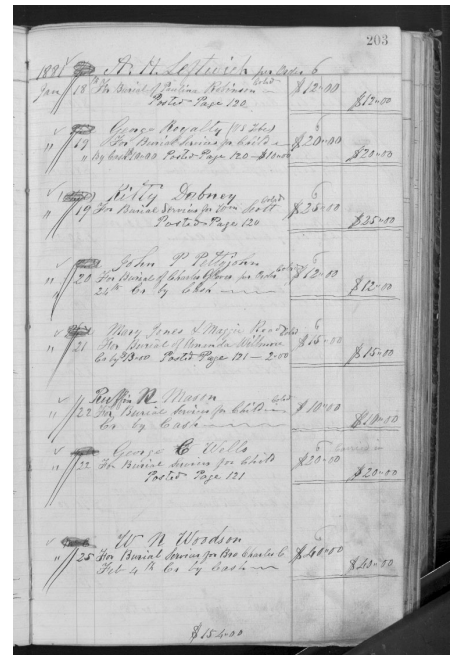 203
1891 A. H. Leftwich per Order 6
Jan 18 For Burial of Paulina Robinson Cold $12-00 $12-00
Posted Page 120
George Royalty 6
" 19 For Burial Service for Child $20-00 $20-00
" By Cash 10-00 Posted Page 120 - $10-00
Kitty Dabney 6
" 19 For Burial Services for Wm Scott Cold $25-00 $25-00
Posted Page 120
John P Pettyjohn 6
" 20 For Burial of Charles per Order Cold $12-00 $12-00
24th Cr by Cash
Mary Jones & Maggie Cold 6
" 21 For Burial of Amanda Wilmore $15-00 $15-00
Cr by 13-00 Posted Page 121 - 2-00
Ruffin N Mason Cold
" 22 For Burial Services for Child $10-00 $10-00
Cr by Cash
George C Wells 6
" 22 For Burial Services for Child $20-00 $20-00
Posted Page 121
W N Woodson 6
" 25 For Burial Services for Bro Charles C $40-00 $40-00
Feb 4th Cr by Cash
$154-00